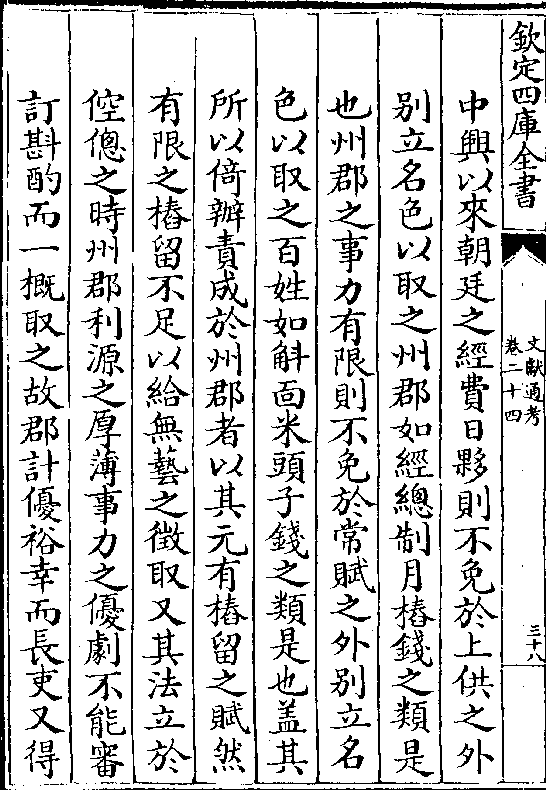 欽定四庫全書
文獻通考
卷二十四
三十八
中興以來朝廷之經費日夥則不免於上供之外
别立名色以取之州郡如經總制月樁錢之類是
也州郡之事力有限則不免於常賦之外别立名
色以取之百姓如斛面米頭子錢之類是也盖其
所以倚辦責成於州郡者以其元有樁留之賦然
有限之樁留不足以給無藝之徴取又其法立於
倥傯之時州郡利源之厚薄事力之優劇不能審
訂斟酌而一概取之故郡計優裕幸而長吏又得